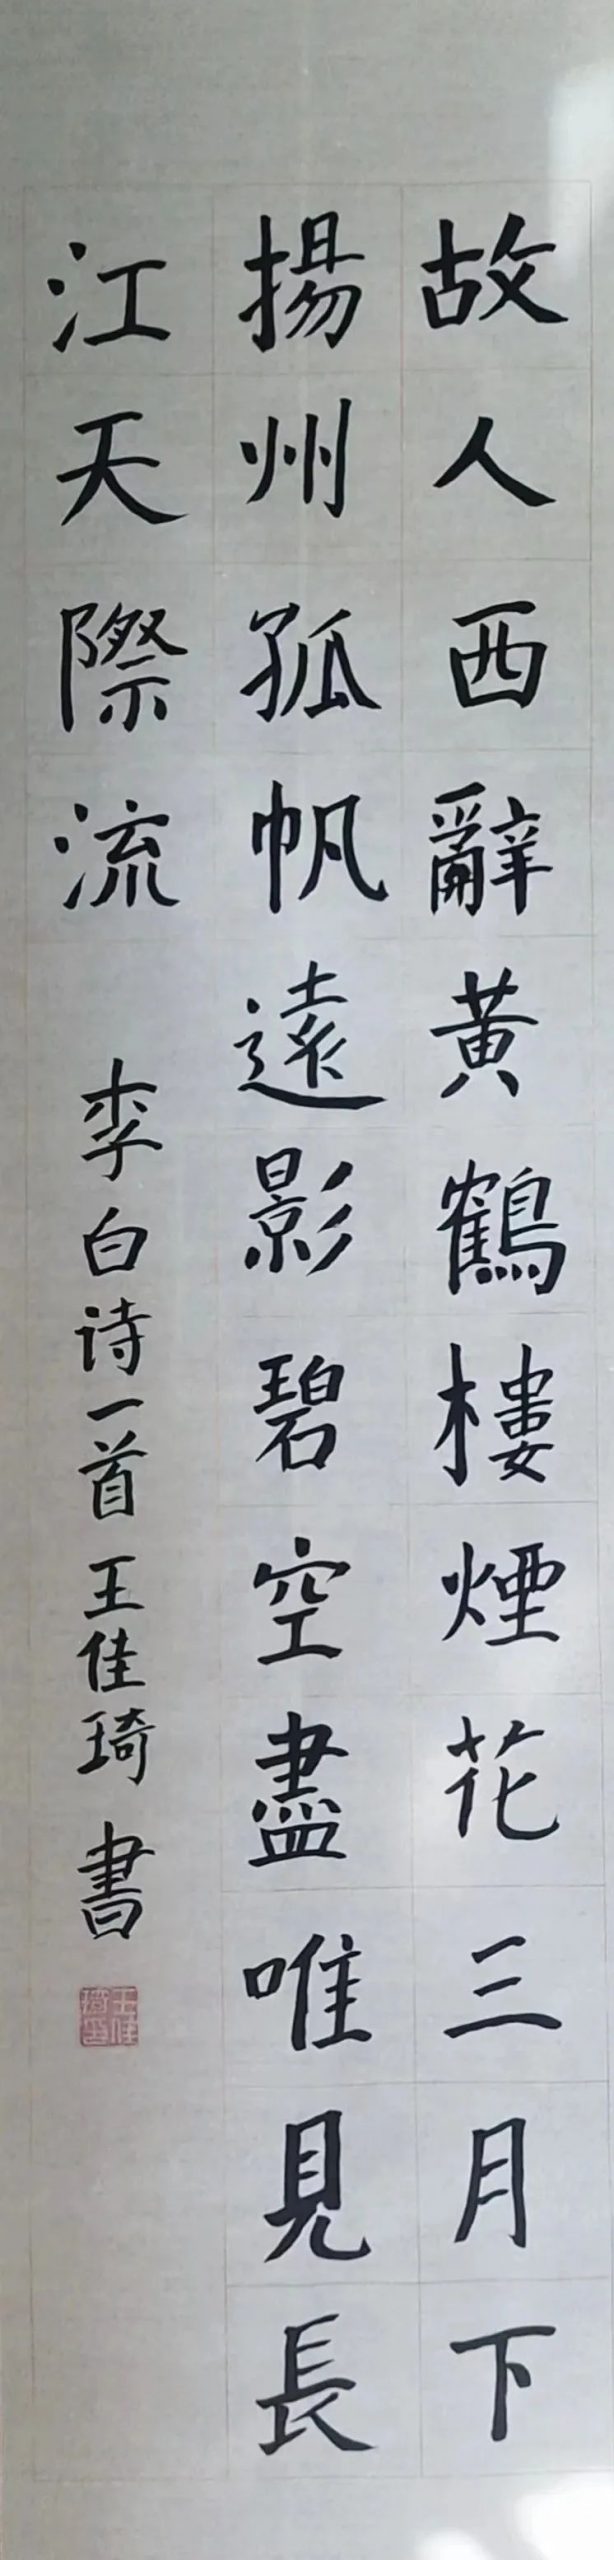 故人西辭黃鶴樓煙花三月下
揚州孤帆遠影碧空盡唯見長
江天際流
李白诗一首王佳琦書